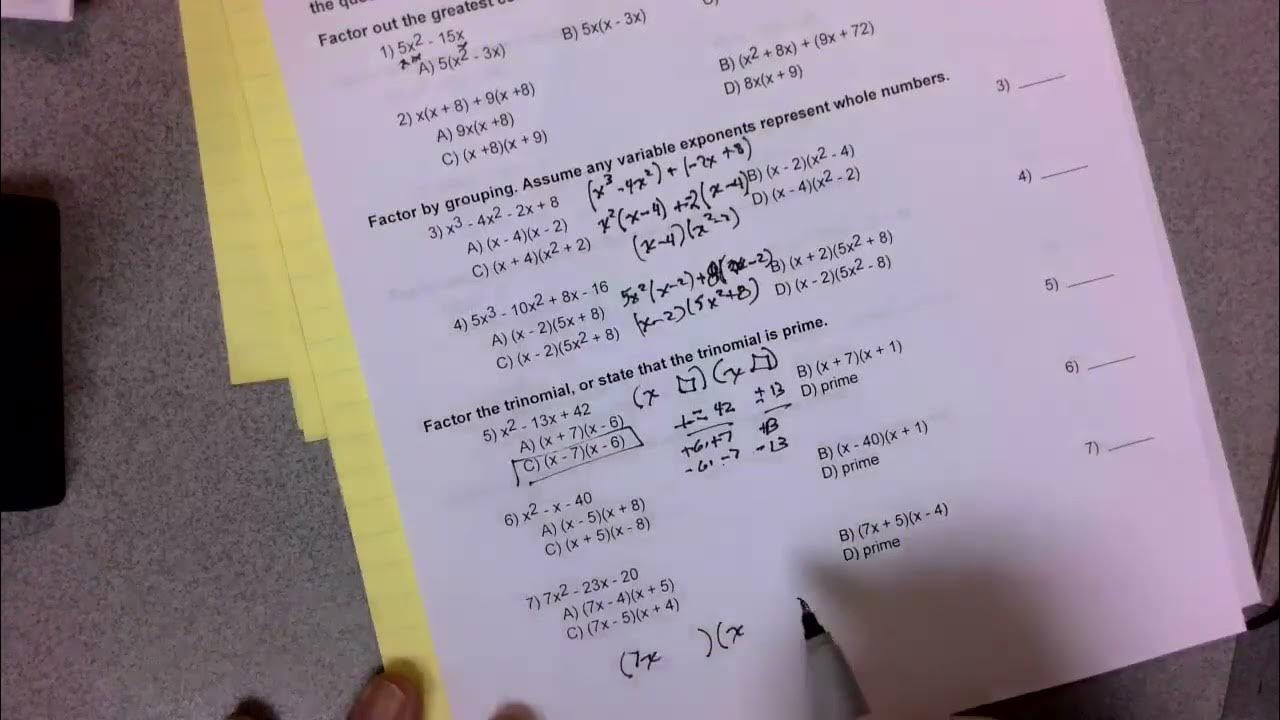 the
Factor out the greatest
1) 5x2 - 15x
A) 5(x2 - 3x)
B) 5x(x - 3x)
2) x(x + 8) + 9(x +8)
A) 9x(x +8)
C) (x +8)(x + 9)
B) (x2 + 8x) + (9x + 72)
D) 8x(x + 9)
3)
Factor by grouping. Assume any variable exponents represent whole numbers.
3) x3 - 4x2 - 2x + 8
A) (x - 4)(x - 2)
C) (x + 4)(x2 + 2)
(x3 - 4x2) + (-2x + 8)
x2(x-4) + -2(x-4)
(x-4)(x2-2)
B) (x - 2)(x2 - 4)
D) (x - 4)(x2 - 2)
4)
4) 5x3 - 10x2 + 8x - 16
A) (x - 2)(5x + 8)
C) (x - 2)(5x2 + 8)
5x2(x-2) + 8(x-2)
(x-2)(5x2+8)
B) (x + 2)(5x2 + 8)
D) (x - 2)(5x2 - 8)
5)
Factor the trinomial, or state that the trinomial is prime.
5) x2 - 13x + 42
A) (x + 7)(x - 6)
C) (x - 7)(x - 6)
(x □)(x □)
42
13
+6,+7 +13
-6,-7 -13
B) (x + 7)(x + 1)
D) prime
6)
6) x2 - x - 40
A) (x - 5)(x + 8)
C) (x + 5)(x - 8)
B) (x - 40)(x + 1)
D) prime
7)
7) 7x2 - 23x - 20
A) (7x - 4)(x + 5)
C) (7x - 5)(x + 4)
B) (7x + 5)(x - 4)
D) prime
(7x )(x